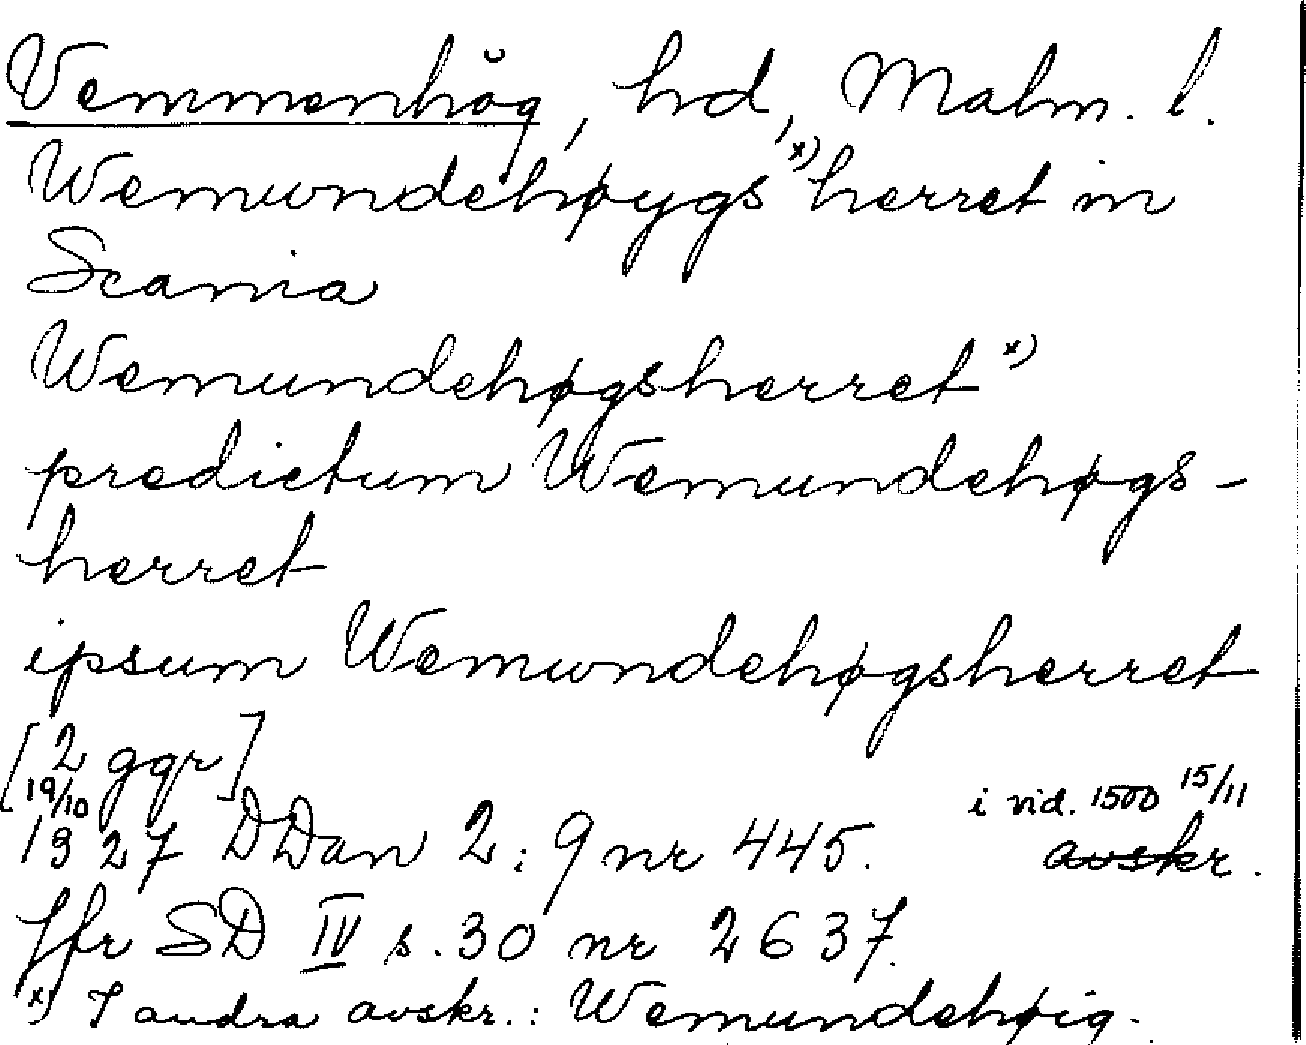 Vemmenhög, hd, Malm. l.
Wemundehøygs x) herret in
Scania
Wemundehøgsherret x)
predictum Wemundehøgs-
herret
ipsum Wemundehøgsherret
[2 ggr]
19/10 i vid. 1500 15/11
1327 DDan 2:9 nr 445. avskr.
Jfr SD IV s. 30 nr 2637.
x) I andra avskr.: Wemundehøig.